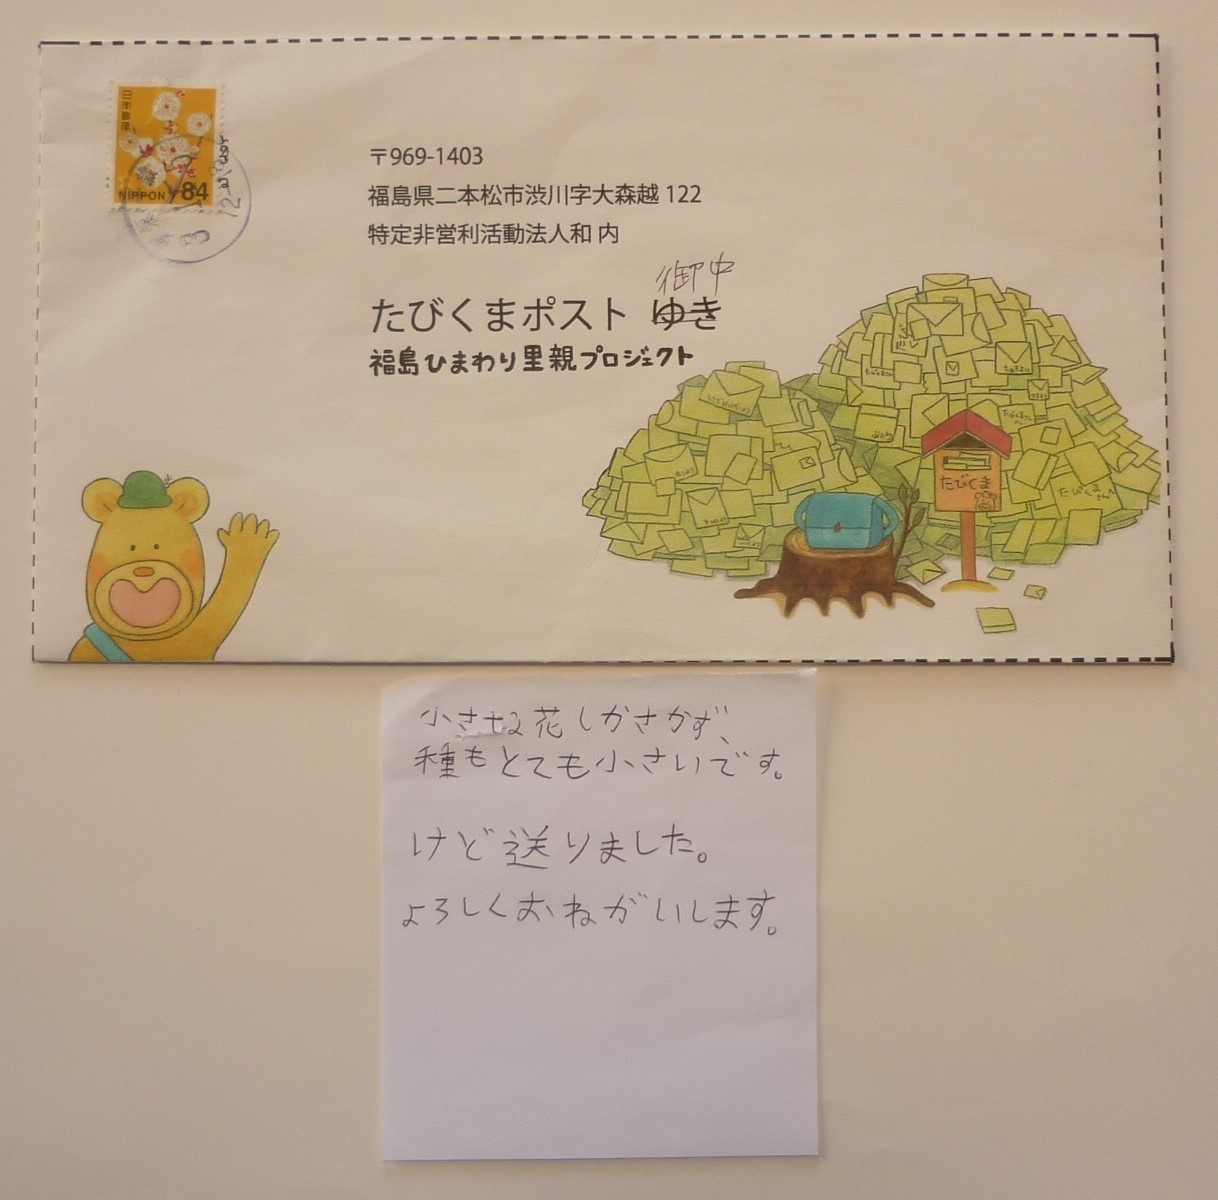 日本郵便
NIPPON 84
〒969-1403
福島県二本松市渋川字大森越 122
特定非営利活動法人和 内
御中
たびくまポスト ゆき
福島ひまわり里親プロジェクト
たびくま
たびくま
さんへ
小さな花しかさかず、
種もとても小さいです。
けど送りました。
よろしくおねがいします。